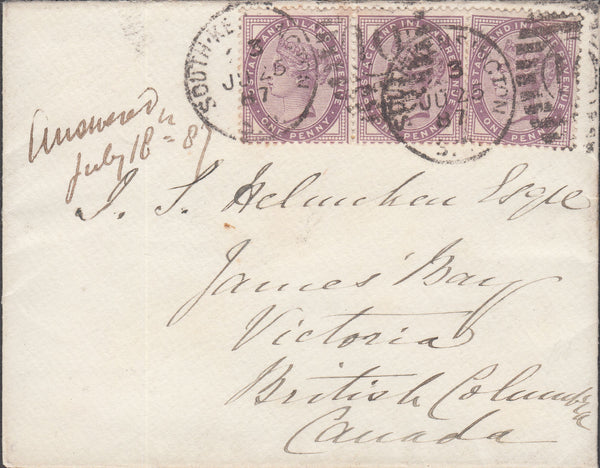 POSTAGE AND INLAND REVENUE
ONE PENNY
POSTAGE AND INLAND REVENUE
ONE PENNY
POSTAGE AND INLAND REVENUE
ONE PENNY
SOUTH KE
JU 25
87
JU 25
87
S.
Answered
July 18 = 87
Helmcken Esqre
James Bay
Victoria
British Columbia
Canada